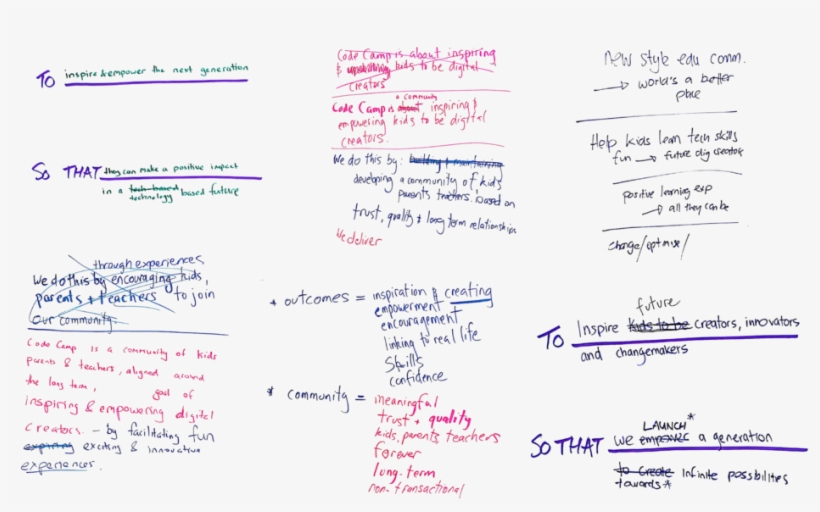 TO inspire & empower the next generation
SO THAT they can make a positive impact
in a tech-based technology based future
Code Camp is about inspiring
& kids to be digital
creators
a community
Code Camp is about inspiring &
empowering kids to be digital
creators.
We do this by: building & maintaining
developing a community of kids
parents teachers. based on
trust, quality & long term relationships
We deliver
new style edu comm.
→ world's a better
place
Help kids learn tech skills
fun → future dig creator
positive learning exp
→ all they can be
change/optmise/
through experiences
We do this by encouraging kids,
parents + teachers to join
Our community.
Code Camp is a community of kids
parents & teachers, aligned around
the long term, goal of
inspiring & empowering digital
creators. - by facilitating fun
expiring exciting & innovative
experiences.
* outcomes = inspiration & creating
empowerment
encouragement
linking to real life
Skills
confidence
* community = meaningful
trust + quality
kids, parents teachers
forever
long-term
non-transactional
future
TO Inspire kids to be creators, innovators
and changemakers
LAUNCH*
SO THAT we empower a generation
to create infinite possbilities
towards*